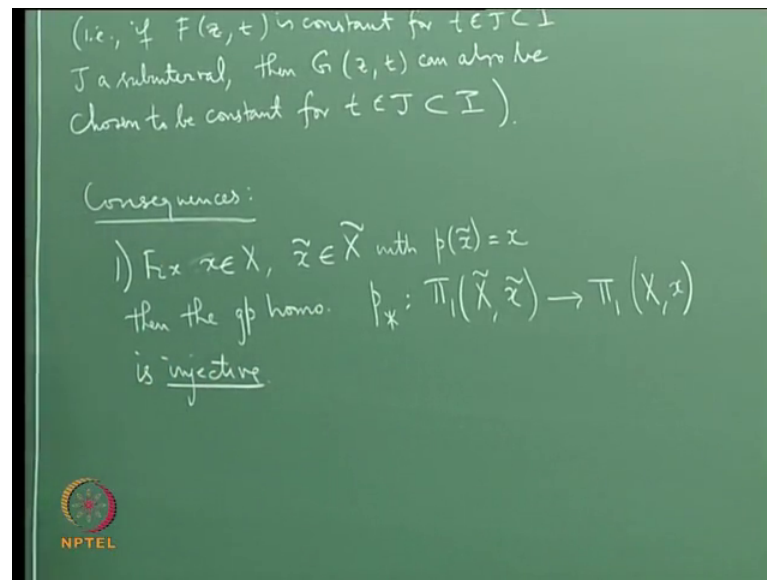 (i.e., if F(z, t) is constant for t ∈ J ⊂ I
J a subinterval, then G(z, t) can also be
chosen to be constant for t ∈ J ⊂ I).
Consequences:
1) Fix x ∈ X, x̃ ∈ X̃ with p(x̃) = x
then the gp homo. p_* : π₁(X̃, x̃) → π₁(X, x)
is injective.
NPTEL